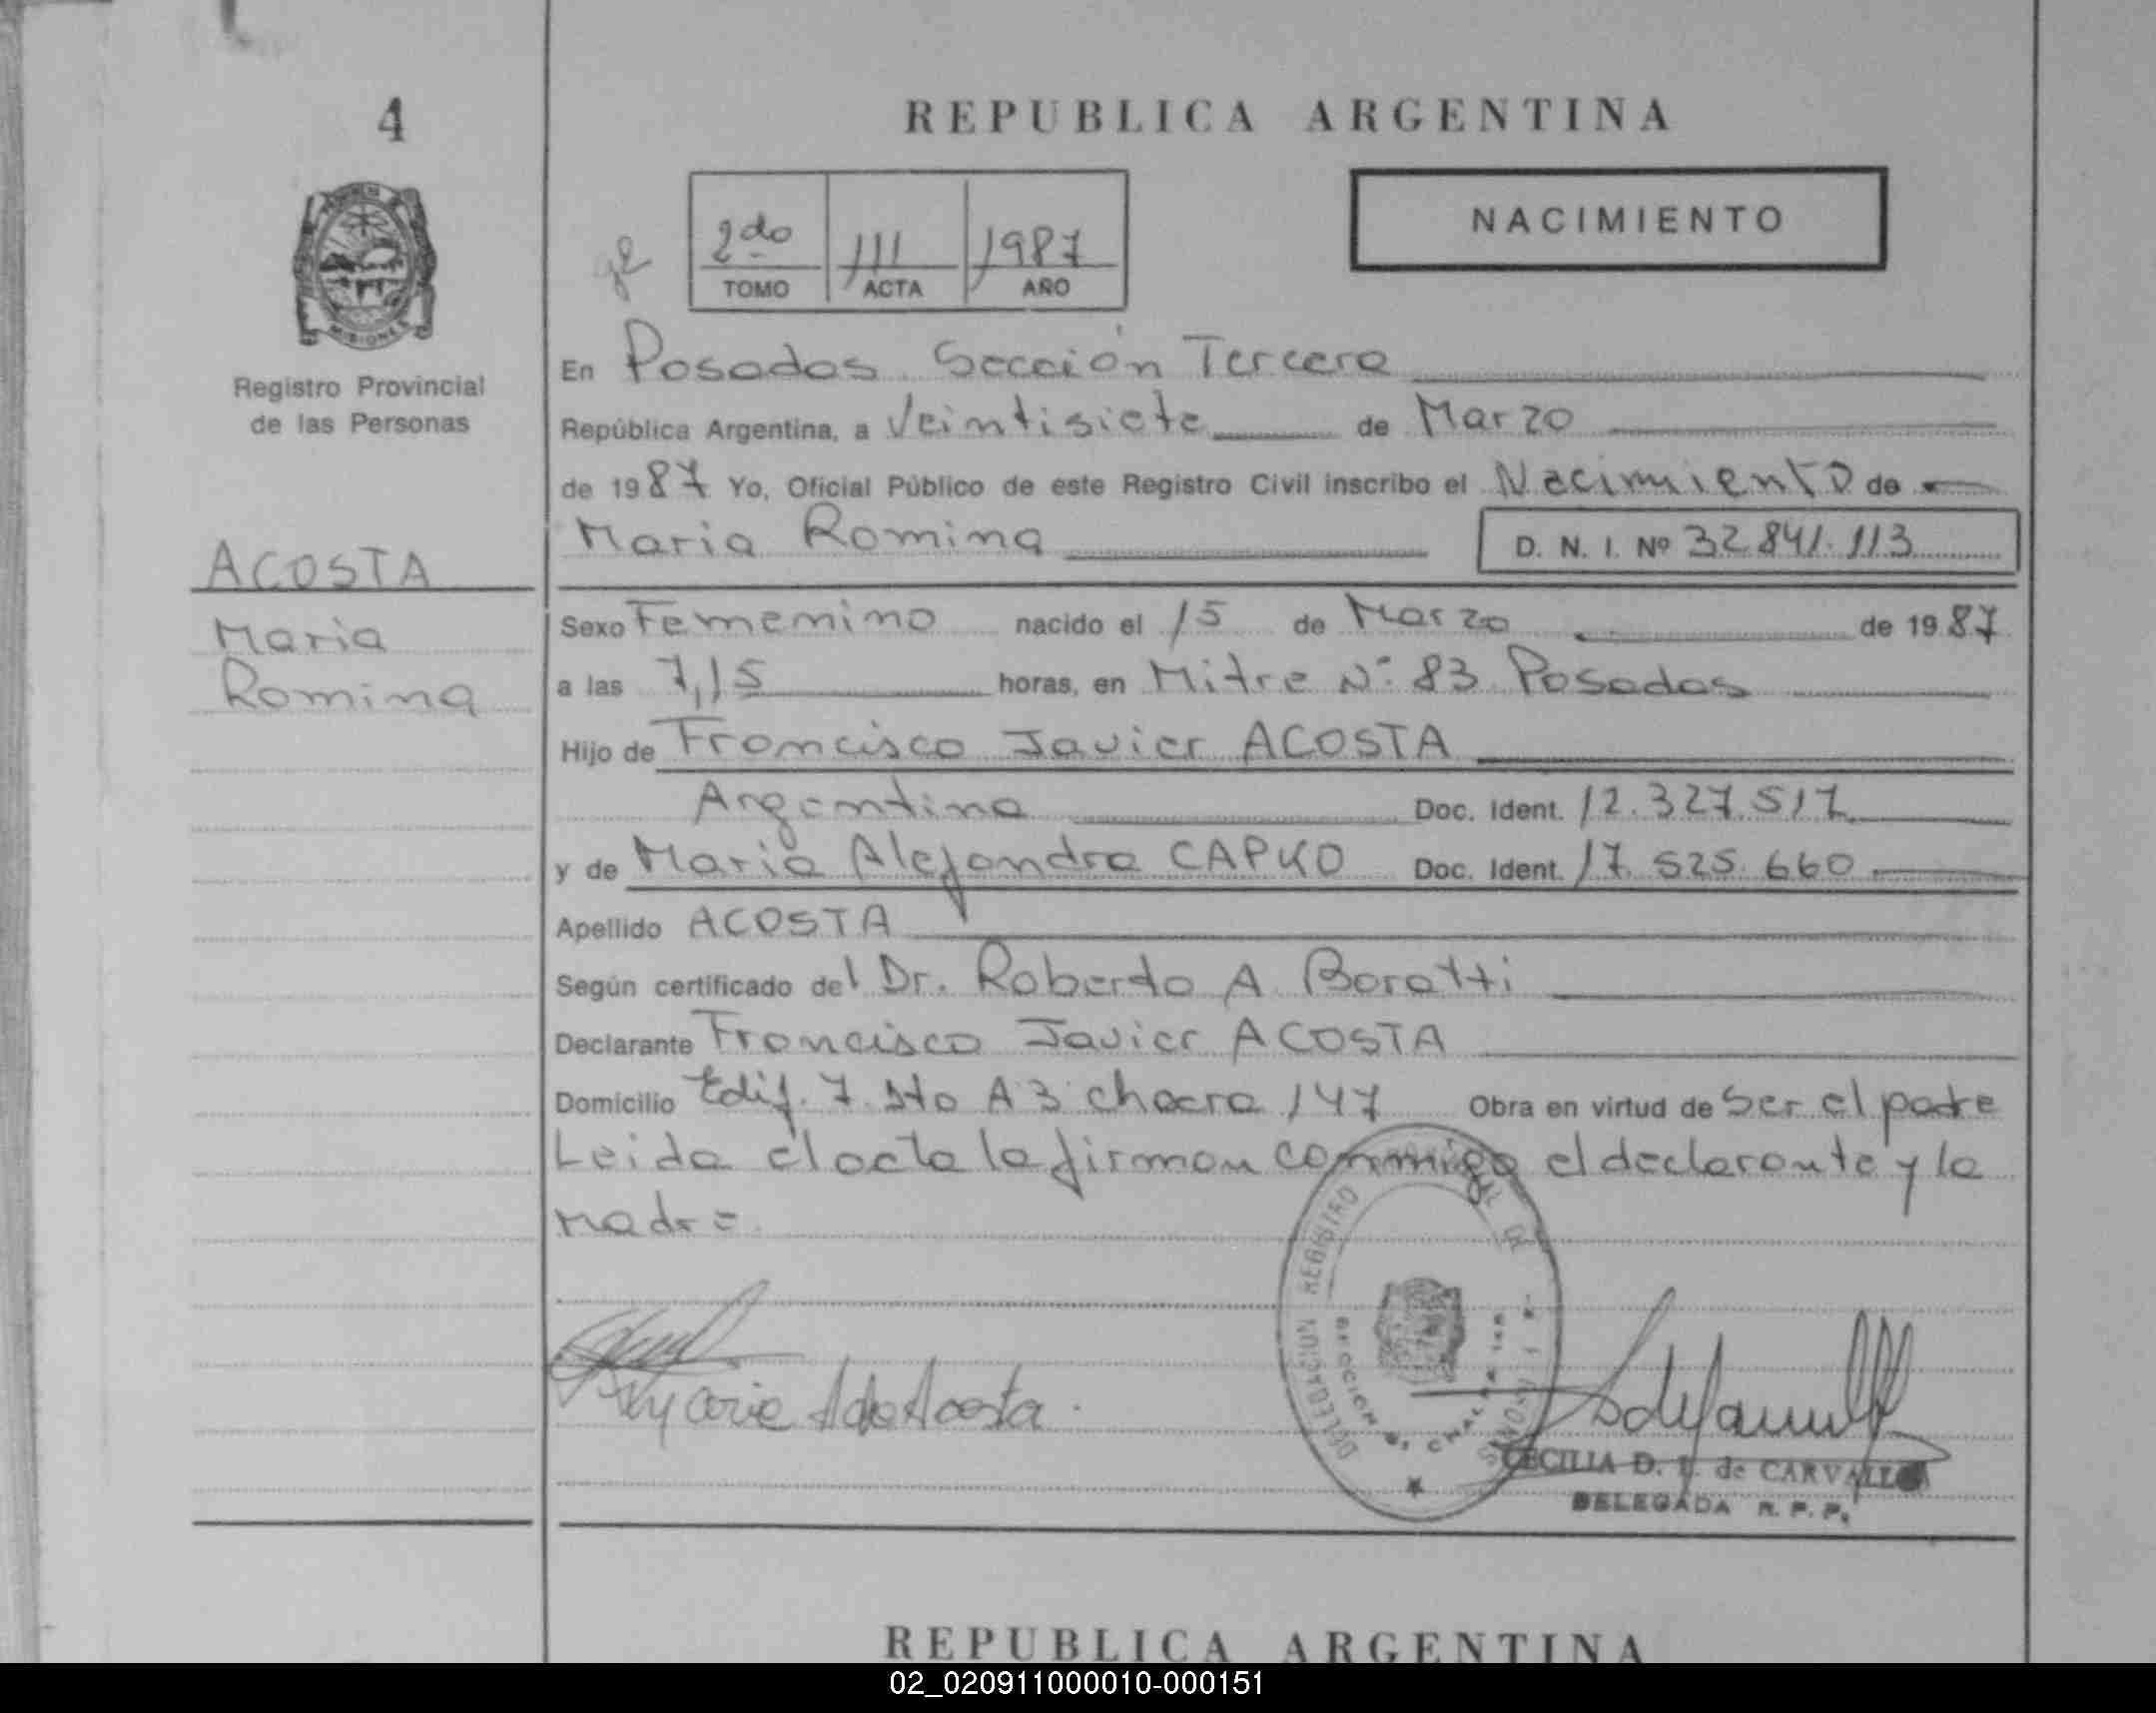 4
REPUBLICA ARGENTINA
NACIMIENTO
2do 111 1987
TOMO ACTA AÑO
MISIONES
Registro Provincial
de las Personas
En Posadas Sección Tercera
República Argentina, a Veintisiete de Marzo
de 1987 Yo, Oficial Público de este Registro Civil inscribo el Nacimiento de
Maria Romina D. N. I. Nº 32.841.113
ACOSTA
Maria
Romina
Sexo Femenino nacido el 15 de Marzo de 1987
a las 7,15 horas, en Mitre Nº 83 Posadas
Hijo de Francisco Javier ACOSTA
Argentina Doc. Ident. 12.327.517
y de Maria Alejandra CAPKO Doc. Ident. 17.525.660
Apellido ACOSTA
Según certificado del Dr. Roberto A. Boratti
Declarante Francisco Javier ACOSTA
Domicilio Edif. 7. Dto A 3 chacra 147 Obra en virtud de Ser el padre
Leida el acta la firman conmigo el declarante y la
Madre
DELEGACION REGISTRO
de Acosta
CECILIA D. de CARVALLO
DELEGADA R. P. P.
REPUBLICA ARGENTINA
02_020911000010-000151